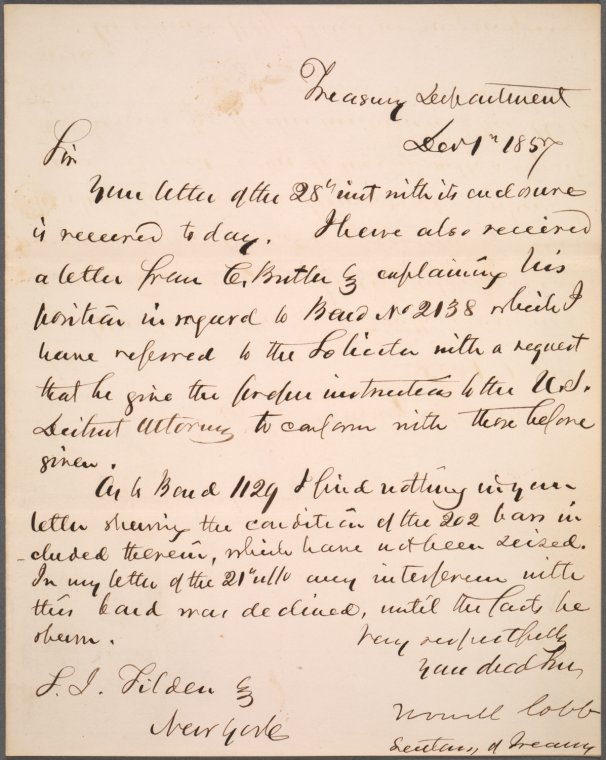 Treasury Department
Decr 1st 1857
Sir
Your letter of the 28th inst with its enclosure
is received to day. I have also received
a letter from C. Butler Esq explaining his
position in regard to Bond No 2138 which I
have referred to the Solicitor with a request
that he give the proper instructions to the U.S.
District Attorney to conform with those before
given.
As to Bond 1129 I find nothing in your
letter showing the condition of the 202 bars in
-cluded therein, which have not been seized.
In my letter of the 21st ulto any interference with
this bond was declined, until the facts be
shown.
Very respectfully
Your obdt Srv
Howell Cobb
Secretary of Treasury
S. J. Tilden Esq
New York